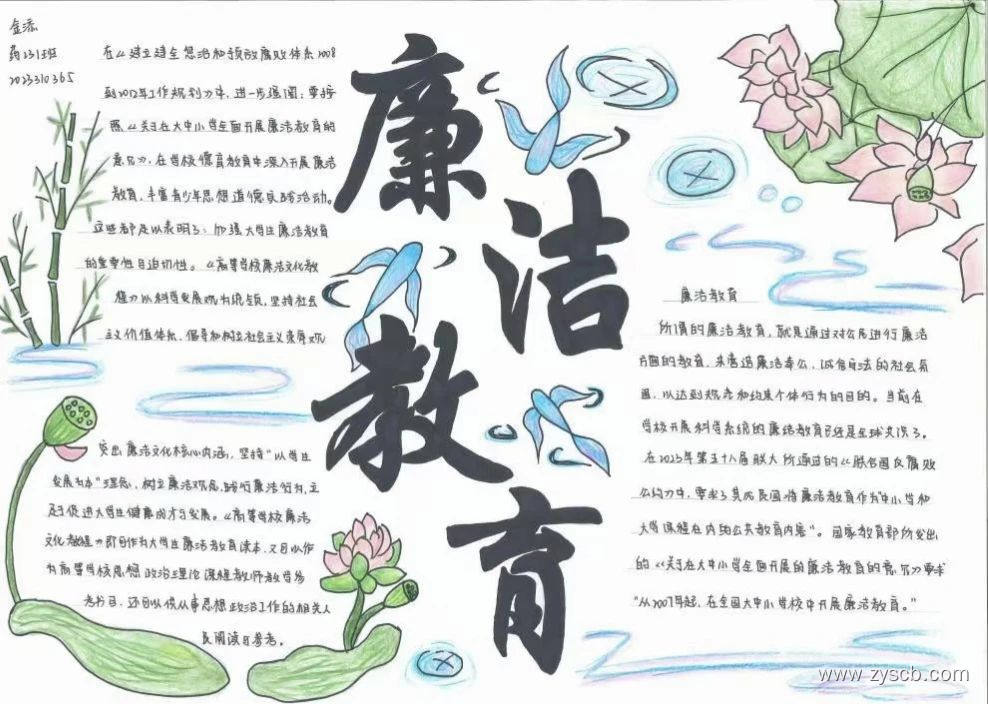 金添
药231班
2023310365
廉洁教育
在《建立健全惩治和预防腐败体系2008
到2012年工作规划》中，进一步强调：要按
照《关于在大中小学全面开展廉洁教育的
意见》，在学校德育教育中深入开展廉洁
教育，丰富青少年思想道德实践活动。
这些都足以表明了：加强大学生廉洁教育
的重要性自迫切性。《高等学校廉洁文化教
程》以科学发展观为统领，坚持社会
主义价值体系，倡导和树立社会主义荣辱观
突出廉洁文化核心内涵，坚持"以学生
发展为本"理念，树立廉洁观念，践行廉洁行为，立
足于促进大学生健康成才与发展。《高等学校廉洁
文化教程》即自作为大学生廉洁教育读本，又自以作
为高等学校思想政治理论课程教师教学参
考书目，还可以供从事思想政治工作的相关人
员阅读自参考。
廉洁教育
所谓的廉洁教育，就是通过对公民进行廉洁
方面的教育，来营造廉洁奉公、诚信守法的社会氛
围，以达到规范和约束个体行为的目的。当前在
学校开展科学系统的廉洁教育已经是全球共识了。
在2003年第五十八届联大所通过的《联合国反腐败
公约》中，要求了其成员国将廉洁教育作为"中小学和
大学课程在内的公共教育内容"。国家教育部所发出
的《关于在大中小学全面开展的廉洁教育的意见》要求
"从2007年起，在全国大中小学校中开展廉洁教育。"
www.zyscb.com